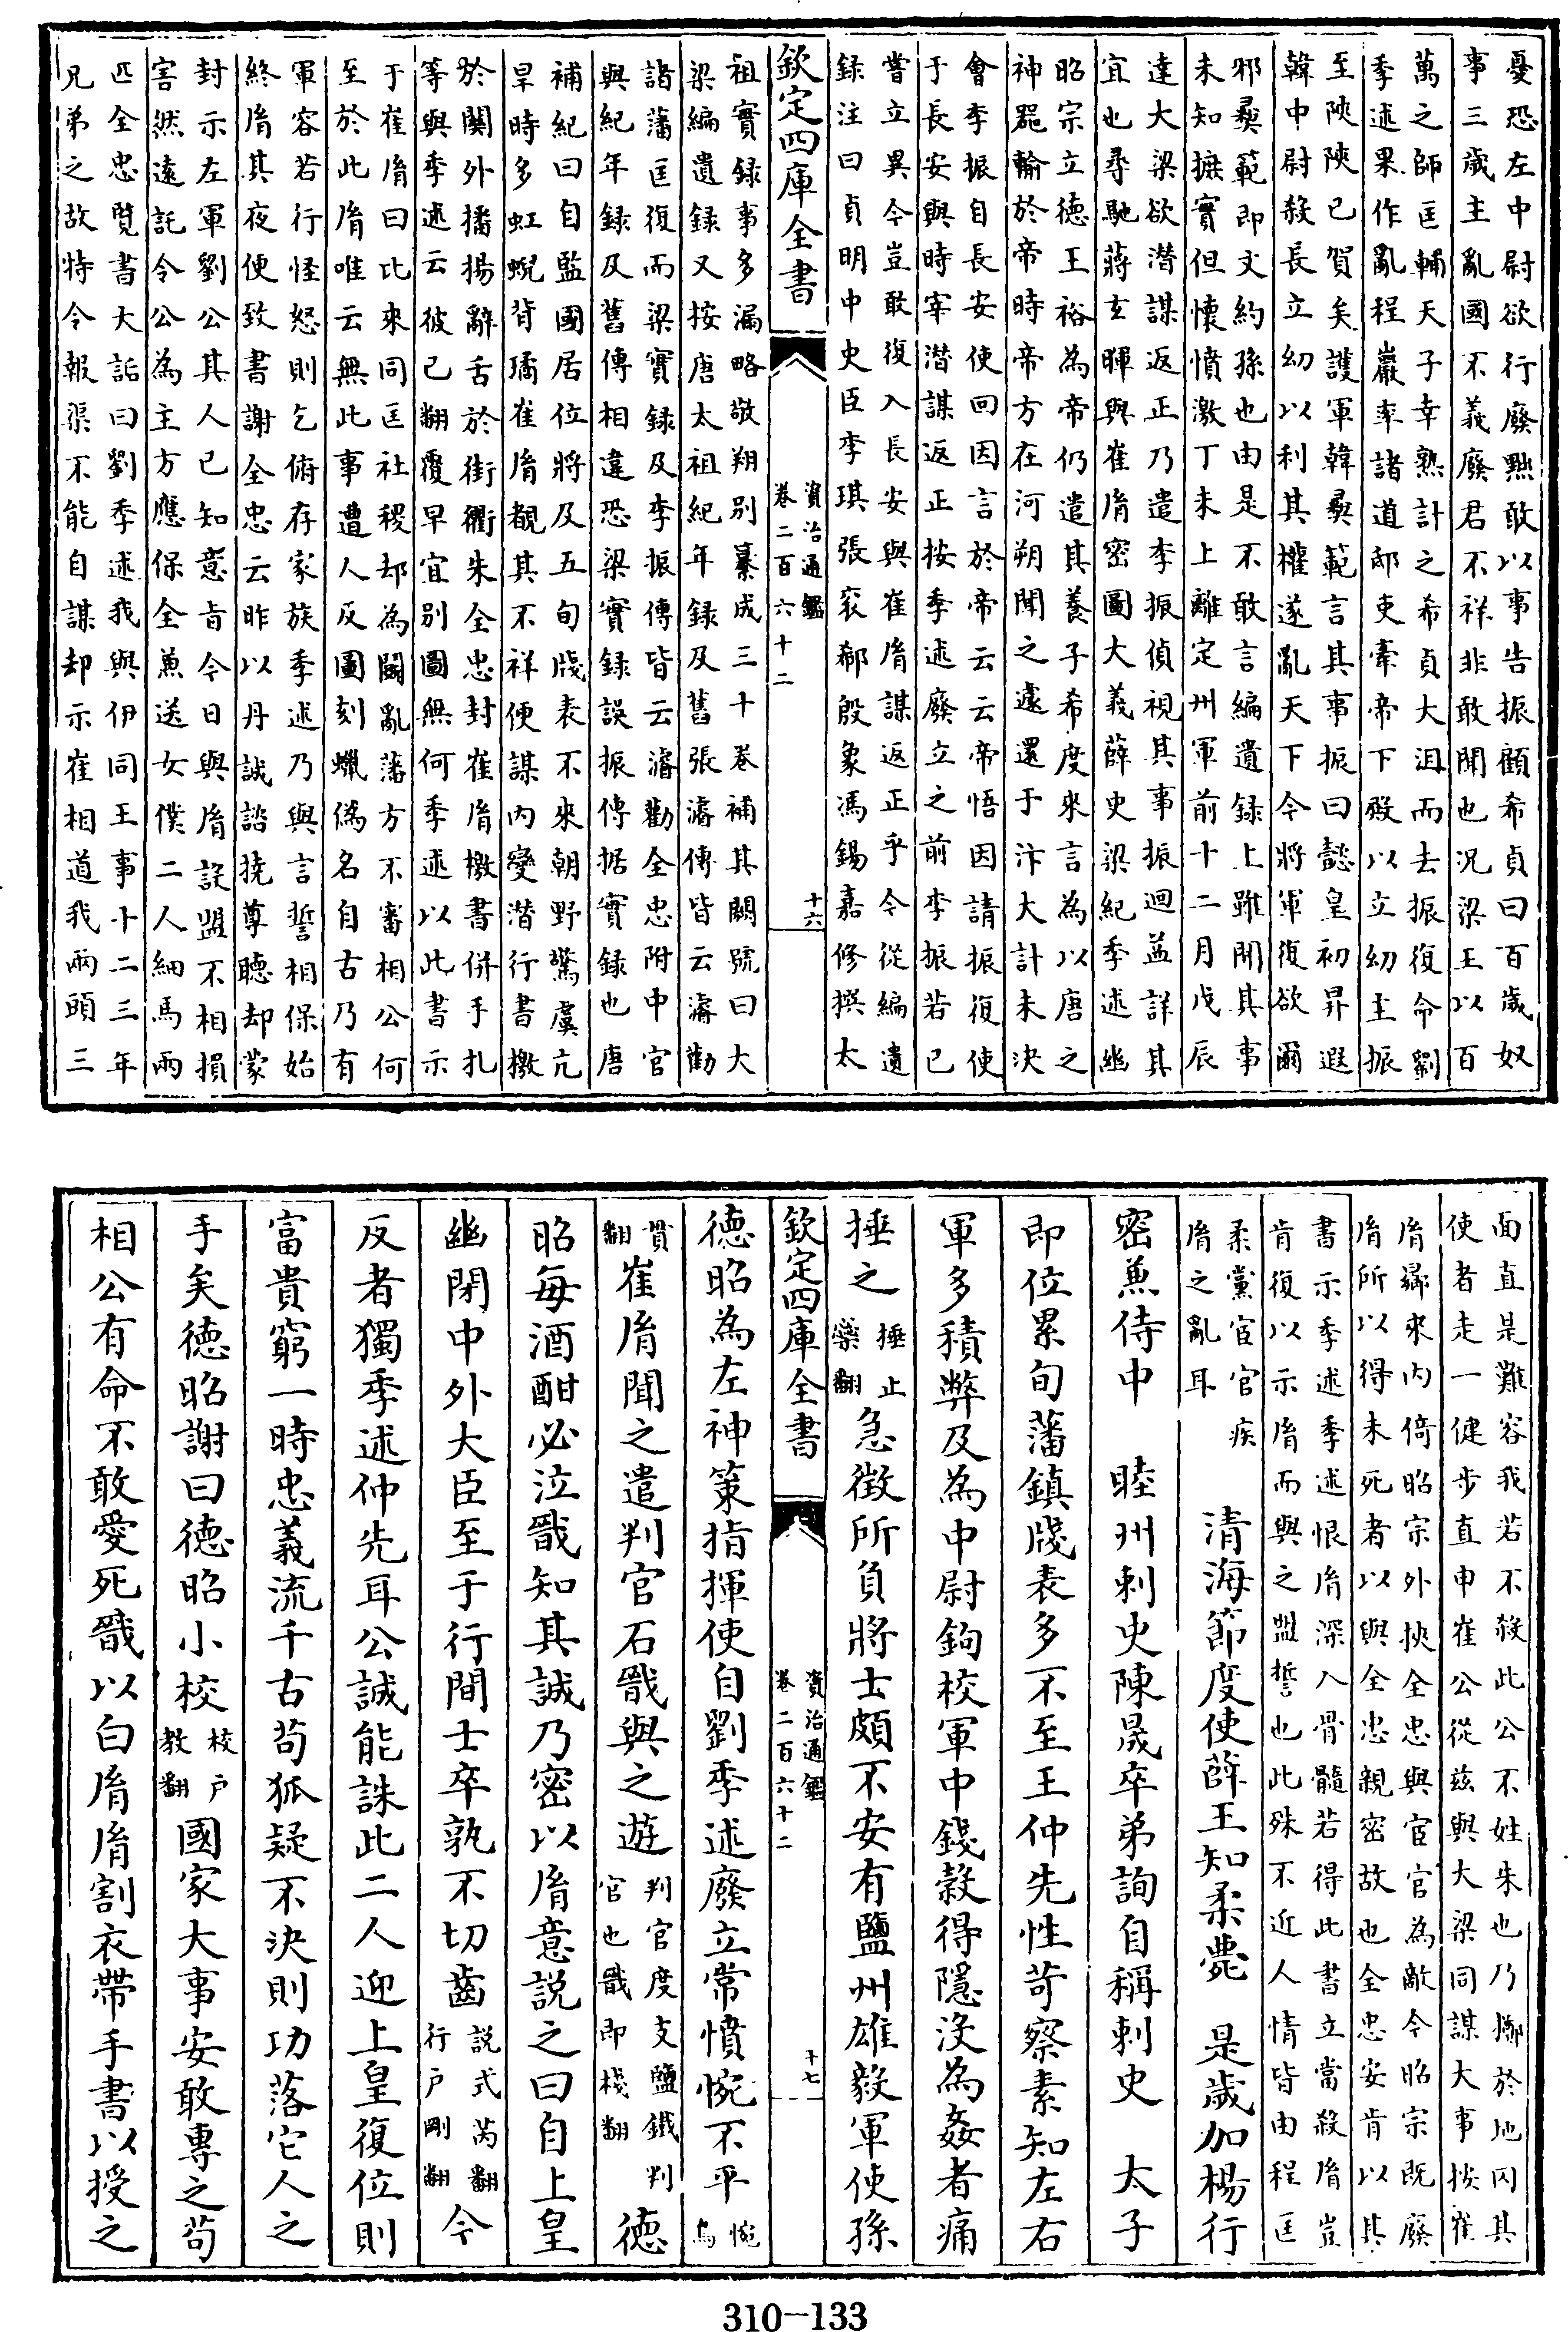 憂恐左中尉欲行廢黜敢以事告振顧希貞曰百歲奴
事三歲主亂國不義廢君不祥非敢聞也况梁王以百
萬之師匡輔天子幸熟計之希貞大沮而去振復命劉
季述果作亂程巖率諸道邸吏牽帝下殿以立幼主振
至陝陝已賀矣護軍韓彝範言其事振曰懿皇初昇遐
韓中尉殺長立幼以利其權遂亂天下今將軍復欲爾
邪彝範即文約孫也由是不敢言編遺録上雖聞其事
未知摭實但懷憤激丁未上離定州軍前十二月戊辰
達大梁欲潜謀返正乃遣李振偵視其事振迴益詳其
宜也尋馳蔣玄暉與崔胤密圖大義薛史梁紀季述幽
昭宗立德王裕為帝仍遣其養子希度來言為以唐之
神器輸於帝時帝方在河朔聞之遽還于汴大計未決
會李振自長安使回因言於帝云云帝悟因請振復使
于長安與時宰潜謀返正按季述廢立之前李振若已
嘗立異今豈敢復入長安與崔胤謀返正乎今從編遺
録注曰貞明中史臣李琪張衮郄殷象馮錫嘉修撰太
欽定四庫全書
資治通鑑
卷二百六十二
十六
祖實録事多漏略敬翔别纂成三十卷補其闕號曰大
梁編遺録又按唐太祖紀年録及舊張濬傳皆云濬勸
諸藩匡復而梁實録及李振傳皆云濬勸全忠附中官
與紀年録及舊傳相違恐梁實録誤振傳据實録也唐
補紀曰自監國居位將及五旬牋表不來朝野驚虞亢
旱時多虹蜺背璚崔胤覩其不祥便謀内變潜行書檄
於闗外播揚辭舌於街衢朱全忠封崔胤檄書併手扎
等與季述云彼已翻覆早宜别圖無何季述以此書示
于崔胤曰比來同匡社稷却為鬬亂藩方不審相公何
至於此胤唯云無此事遭人反圖刻蠟偽名自古乃有
軍容若行怪怒則乞俯存家族季述乃與言誓相保始
終胤其夜便致書謝全忠云昨以丹誠諮撓尊聽却蒙
封示左軍劉公其人已知意旨今日與胤設盟不相損
害然遠託令公為主方應保全兼送女僕二人細馬兩
匹全忠覽書大詬曰劉季述我與伊同王事十二三年
兄弟之故特令報渠不能自謀却示崔相道我兩頭三
面直是難容我若不殺此公不姓朱也乃擲於地囚其
使者走一健步直申崔公從兹與大梁同謀大事按崔
胤歸來内倚昭宗外挾全忠與宦官為敵今昭宗既廢
胤所以得未死者以與全忠親密故也全忠安肯以其
書示季述季述恨胤深入骨髓若得此書立當殺胤豈
肯復以示胤而與之盟誓也此殊不近人情皆由程匡
柔黨宦官疾
胤之亂耳
清海節度使薛王知柔薨　是歲加楊行
密兼侍中　睦州刺史陳晟卒弟詢自稱刺史　太子
即位累旬藩鎮牋表多不至王仲先性苛察素知左右
軍多積弊及為中尉鉤校軍中錢穀得隱沒為姦者痛
捶之捶止橤翻急徵所負將士頗不安有鹽州雄毅軍使孫
欽定四庫全書
資治通鑑
卷二百六十二
十七
德昭為左神策指揮使自劉季述廢立常憤惋不平惋烏
貫翻崔胤聞之遣判官石戩與之遊判官度支鹽鐵判官也戩即棧翻德
昭每酒酣必泣戩知其誠乃密以胤意説之曰自上皇
幽閉中外大臣至于行間士卒孰不切齒説式芮翻行戶剛翻今
反者獨季述仲先耳公誠能誅此二人迎上皇復位則
富貴窮一時忠義流千古苟狐疑不決則功落它人之
手矣德昭謝曰德昭小校校戶教翻國家大事安敢專之苟
相公有命不敢愛死戩以白胤胤割衣帶手書以授之
310-133